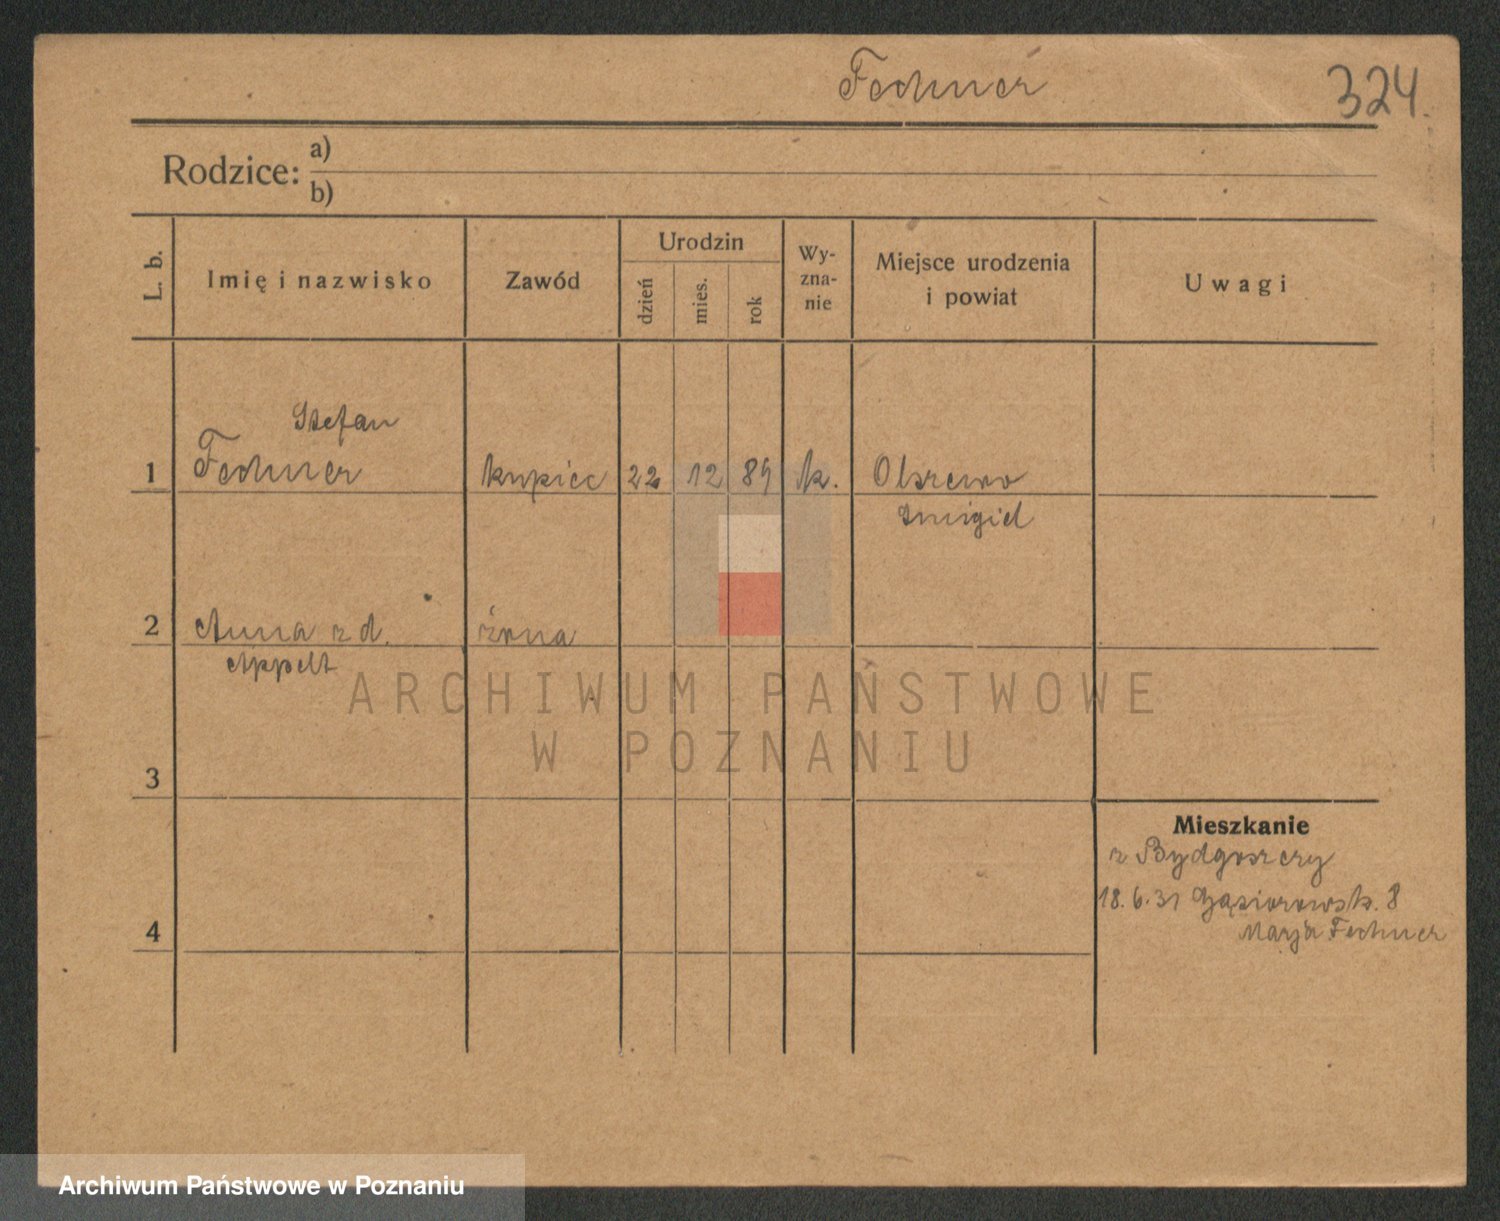 Fechner
324.
Rodzice: a)
b)
L. b.
Imię i nazwisko
Zawód
Urodzin
dzień
mies.
rok
Wy-
zna-
nie
Miejsce urodzenia
i powiat
Uwagi
Stefan
1 Fechner kupiec 22 12 89 k. Olszewo
Śmigiel
2 Anna z d. żona
Appelt
ARCHIWUM PAŃSTWOWE
W POZNANIU
3
Mieszkanie
z Bydgoszczy
18.6.31 Gąsiorowsk. 8
Marja Fechner
4
Archiwum Państwowe w Poznaniu